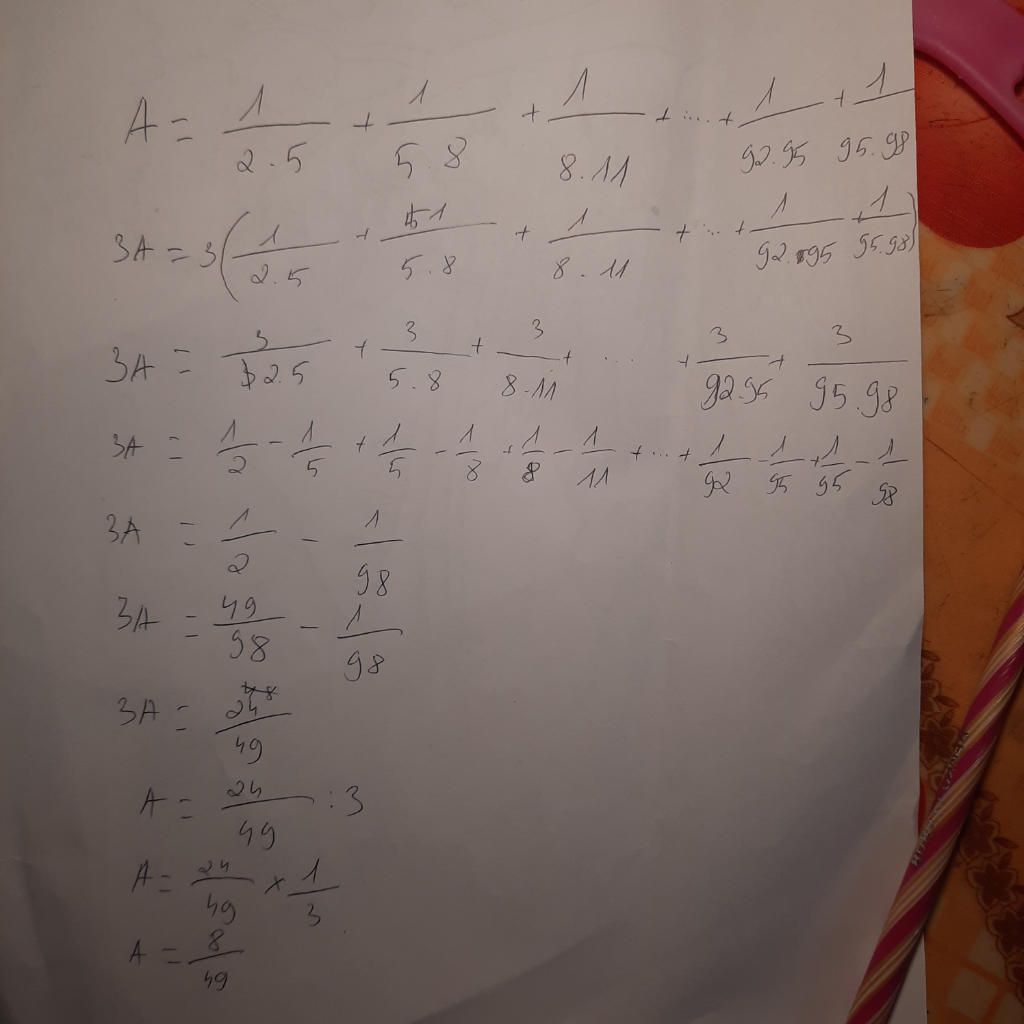 A = 1/2.5 + 1/5.8 + 1/8.11 + .... + 1/92.95 + 1/95.98
3A = 3(1/2.5 + 1/5.8 + 1/8.11 + ... + 1/92.95 + 1/95.98)
3A = 3/2.5 + 3/5.8 + 3/8.11 + .... + 3/92.95 + 3/95.98
3A = 1/2 - 1/5 + 1/5 - 1/8 + 1/8 - 1/11 + ... + 1/92 - 1/95 + 1/95 - 1/98
3A = 1/2 - 1/98
3A = 49/98 - 1/98
3A = 24/49
A = 24/49 : 3
A = 24/49 × 1/3
A = 8/49